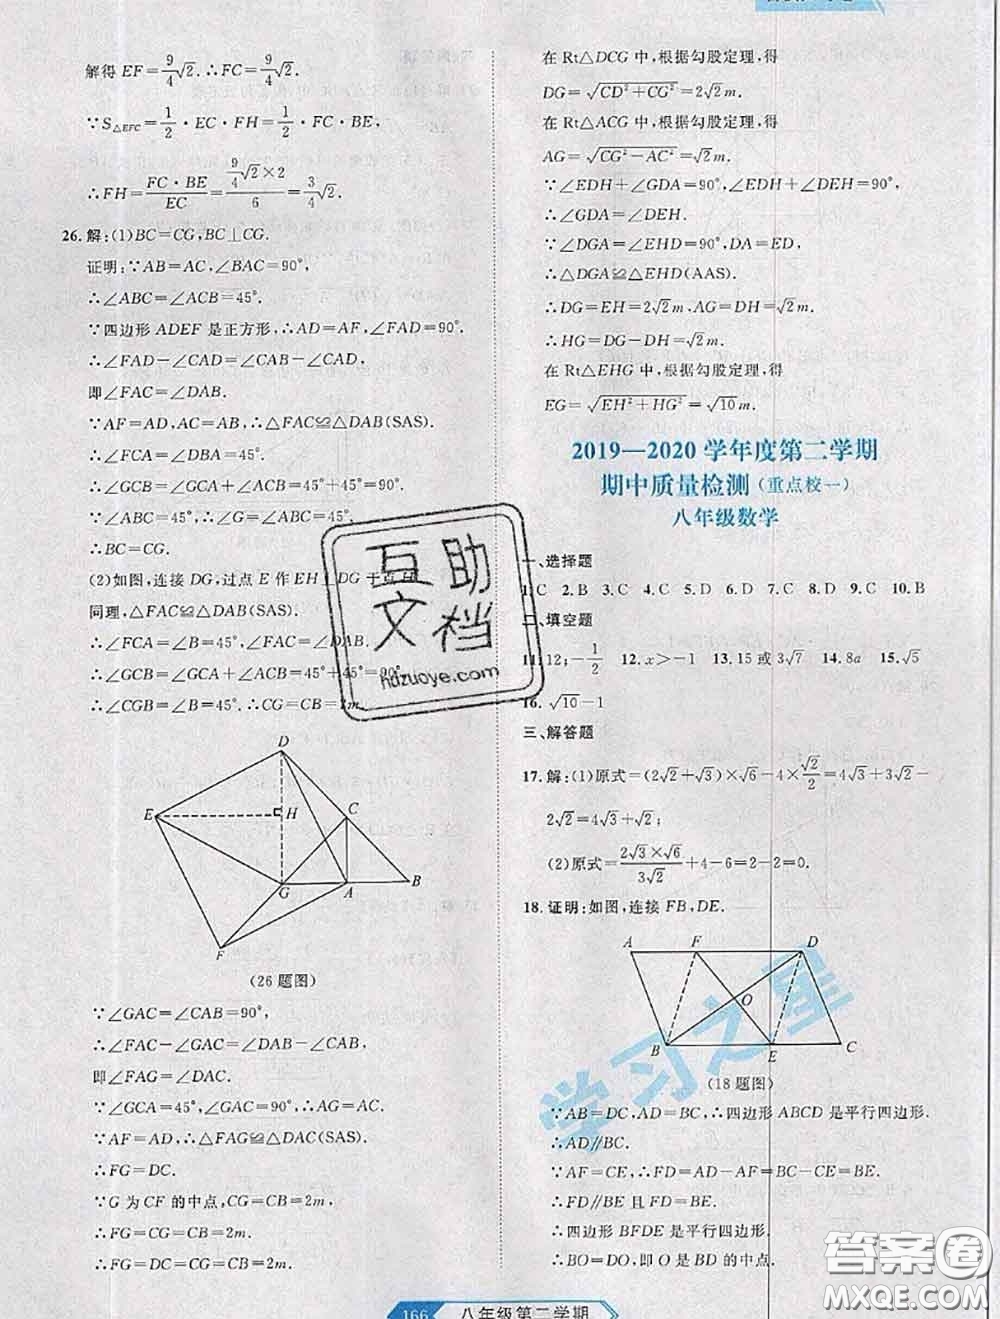 解得 EF=9/4√2.∴FC=9/4√2.
∵S△EFC=1/2·EC·FH=1/2·FC·BE,
∴FH=FC·BE/EC=(9/4√2×2)/6=3/4√2.
26.解:(1)BC=CG,BC⊥CG.
证明:∵AB=AC,∠BAC=90°,
∴∠ABC=∠ACB=45°.
∵四边形 ADEF 是正方形,∴AD=AF,∠FAD=90°.
∴∠FAD-∠CAD=∠CAB-∠CAD.
即∠FAC=∠DAB.
∵AF=AD,AC=AB,∴△FAC≌△DAB(SAS).
∴∠FCA=∠ABC=45°.
∴∠BCG=∠ACB+∠FCA=45°+45°=90°.
∵∠ABC=45°,∴∠G=∠ABC=45°.
∴BC=CG.
(2)如图,连接 DG,过点 E 作 EH⊥DG 于点 H.
同理,△FAC≌△DAB(SAS).
∴∠FCA=∠ABC=45°,∠FAC=∠DAB.
∴∠BCG=∠GCA+∠ACB=45°+45°=90°.
∴∠CGB=∠ABC=45°.∴CG=CB=2m.
D
E
H
C
G
A
B
F
(26 题图)
∵∠GAC=∠CAB=90°,
∴∠GAC-∠FAC=∠CAB-∠DAB.
即∠FAG=∠DAC.
∵∠GCA=45°,∠GAC=90°,∴AG=AC.
∵AF=AD,∴△FAG≌△DAC(SAS).
∴FG=DC.
∵G 为 CF 的中点,CG=CB=2m,
∴FG=CG=CB=2m.
∴CD=FG=2m.
166
八年级第二学期
在 Rt△DCG 中,根据勾股定理,得
DG=√(CD²+CG²)=2√2m.
在 Rt△ACG 中,根据勾股定理,得
AG=√(CG²-AC²)=√2m.
∵∠EDH+∠GDA=90°,∠EDH+∠DEH=90°,
∴∠GDA=∠DEH.
∵∠DGA=∠EHD=90°,DA=ED,
∴△DGA≌△EHD(AAS).
∴DG=EH=2√2m,AG=DH=√2m.
∴HG=DG-DH=√2m.
在 Rt△EHG 中,根据勾股定理,得
EG=√(EH²+HG²)=√10m.
2019—2020 学年度第二学期
期中质量检测(重点校一)
八年级数学
一、选择题
1.C 2.B 3.C 4.A 5.D 6.D 7.C 8.D 9.C 10.B
二、填空题
11.12;-1/2 12.x>-1 13.15 或 3√7 14.8a 15.√5
16.√10-1
三、解答题
17.解:(1)原式=(2√2+√3)×√6-4×√2/2=4√3+3√2-
2√2=4√3+√2.
(2)原式=(2√3×√6)/(3√2)+4-6=2-2=0.
18.证明:如图,连接 FB,DE.
A
F
D
O
B
E
C
(18 题图)
∵AB=DC,AD=BC,∴四边形 ABCD 是平行四边形.
∴AD∥BC.
∵AF=CE,∴FD=AD-AF=BC-CE=BE.
∴FD∥BE 且 FD=BE.
∴四边形 BFDE 是平行四边形.
∴BO=DO,即 O 是 BD 的中点.
互助
文档
hdzuoye.com
学习之星
答案圈
MXQE.COM